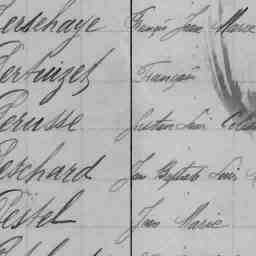 Persehaye François Jean Marie
Pertuizet François
Perusse Gustave Louis
Peschard Jean Baptiste Louis
Pessel Jean Marie